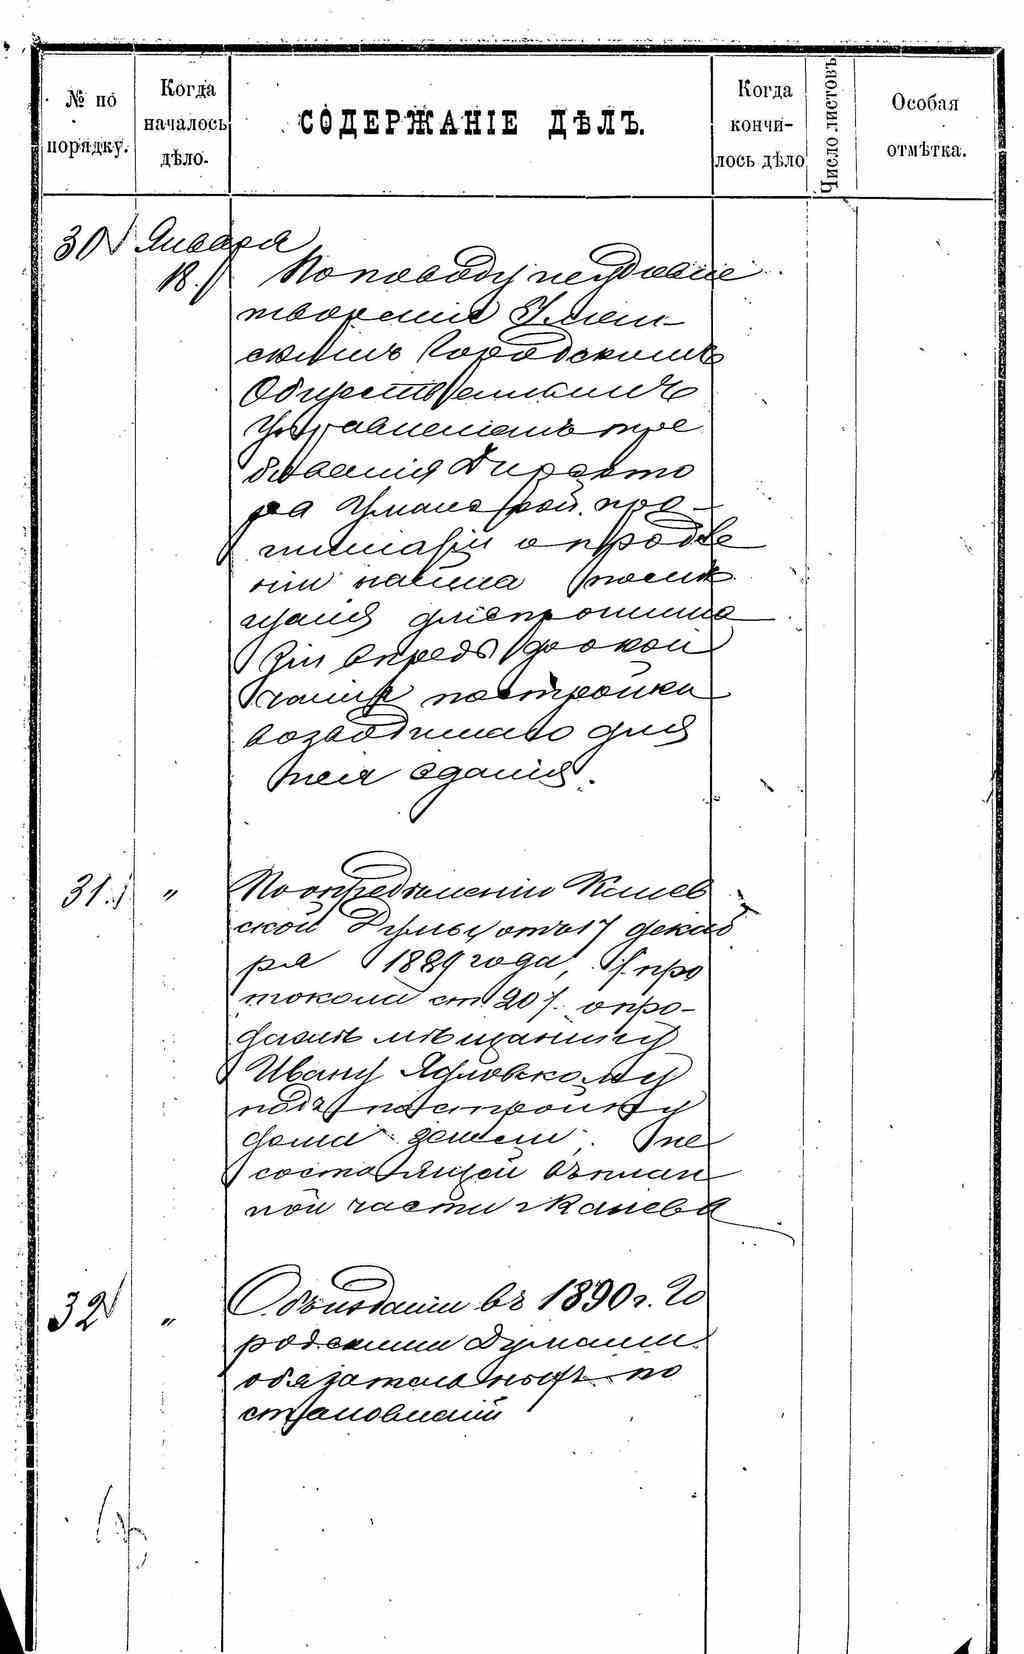 № по порядку.
Когда началось дѣло.
СОДЕРЖАНІЕ ДѢЛЪ.
Когда кончилось дѣло
Число листовъ
Особая отмѣтка.
30 Января
18. По поводу неудовле
творенія Уман-
скимъ Городскимъ
Общественнымъ
Управленіемъ тре
бованія Директо
ра Уманской про-
гимназіи о продле
ніи найма помѣ
щенія для прогимна
зіи впредь до окон
чанія постройки
возводимаго для
нея зданія.
31. „ По опредѣленію Канев
ской Думы отъ 17 декаб
ря 1889 года, (про
токола ст. 20). о про-
дажѣ мѣщанину
Ивану Ядловскому
подъ постройку
дома земли, не
состоящей въ план
ной части г Канева
32 „ Объ изданіи въ 1890 г. Го
родскими Думами
обязательныхъ по
становленій